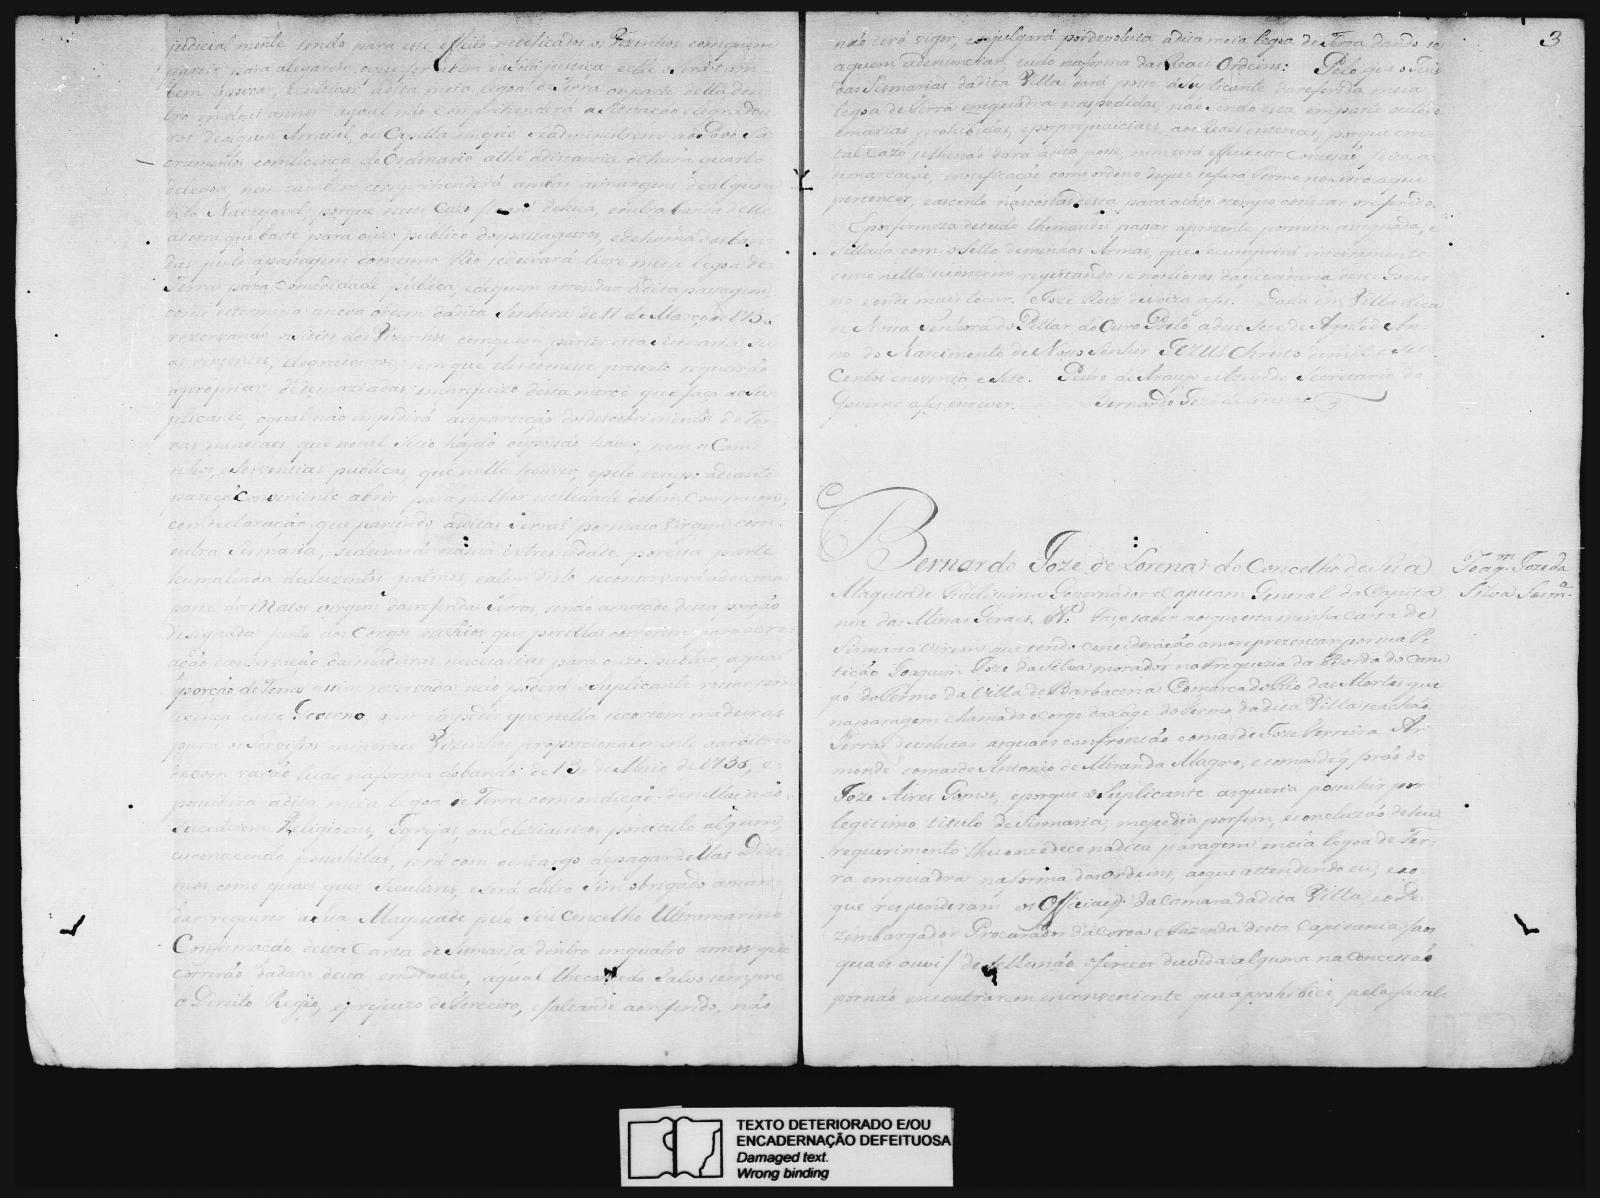 judicial mente sendo para esse effeito notificados os Vizinhos com quem
partir para alegarem o que for a bem da Sua justiça e elle o será tam
bem a povoar, e cultivar a dita meia legoa de Terra ou parte della den
tro em dous annos a qual não comprihenderá a Situação e Logradou
ros de algum Arraial, ou Capella em que se administrem ao Povo Sa
cramentos com licença do Ordenario athé a distancia de hum quarto
de legoa, nem tambem comprihenderá ambas as margens de algum
Rio Navegavel, porque neste Cazo ficará de huã, e outra banda delle
a terra que baste para o uzo publico dos passageiros, e de huma das ban
das junto a passagem do mesmo Rio se deixará livre meia legoa de
Terra para Comodidade publica, e de quem arrendar a dita passagem,
como determina a nova ordem da dita Senhora de 11 de Março de 175
rezervando os sitios dos Vizinhos com quem partir esta Sismaria, Su
as vertentes, e Logradouros, sem que elles com este pretexto se queirão
apropriar de demaziadas em prejuizo desta mercê que faço ao Su
plicante, o qual não impedirá a repartição dos descobrimentos de Ter
ras mineraes que no tal Sitio hajão ou possão haver, nem os Cami
nhos, e Serventias publicas, que nelle houver, e pelo tempo adiante
pareça Conveniente abrir para melhor utilidade do bem Commum;
com declaração, que partindo as ditas Terras por mato Virgem com
outra Sismaria, se deixará na sua extremidade por esta parte
huma linda de duzentos palmos, e alem disto se conservará a decima
parte dos Matos virgens das referidas Terras, sendo ametade desta porção
designada junto aos Corgos ou Rios que por ellas correrem, para a cre
ação e conservação das madeiras necessarias para o uzo publico, a qual
porção de Terra assim rezervada não poderá o Suplicante rossar sem
licença deste Governo, nem impedir que nella se cortem madeiras
para os Serviços mineraes Vizinhos proporcionalmente a arbitrio
de bom varão tudo na forma do bando de 13 de Maio de 1736, e
possuhirá a dita meia legoa de Terra com condição de nellas não
Sucederem Religioens, Igrejas, ou Ecleziasticos por titulo algum,
e acontecendo possuhilas, será com o encargo de pagar dellas Dizi
mos como quaes quer Seculares, e será outro Sim obrigado a man
dar requerer a Sua Magestade pelo Seu Concelho Ultramarino
Confirmação desta Carta de Sismaria dentro em quatro annos que
correrão da data desta em diante, a qual lhe concedo Salvo sempre
o Direito Regio, e prejuizo de terceiro, e faltando ao referido, não
3
não terá vigor, e se julgará por devoluta a dita meia legoa de Terra dando se
a quem a denunciar, tudo na forma das Reaes Ordens: Pelo que o Juiz
das Sismarias da dita Villa dará posse ao Suplicante da referida meia
legoa de Terra em quadra nas pedidas, não sendo esta em parte ou
tal Cazo se lhe não dará a dita posse, nem terá effeito esta Concessão, feita a
demarcação, e notificação como ordeno de que se fará termo no Livro a que
pertencer, e assento nas costas desta para a todo o tempo constar o referido.
E por firmeza de tudo lhe mandei passar a prezente por mim assignada, e
Sellada com o Sello de minhas Armas, que se cumprirá inteiramente
como nella se contem registando se nos Livros da Secretaria deste Gover
no e onde mais tocar. Joze Roiz de Soiza a fes. Dada em Villa Rica
de Nossa Senhora do Pillar do Ouro Preto a deze Sete de Agosto de An
no do Nascimento de Nosso Senhor JEZUS Christo de mil e Sete
Centos e noventa e Sete. Pedro de Araujo e Azevedo Secretario do
Governo a fes escrever. Bernardo Joze de Lorena
Bernardo Joze de Lorena do Concelho de Sua
Joaqm. Joze da
Silva Sesma.
Magestade Fidelissima Governador e Capitam General da Capita
nia das Minas Geraes. &ca. Faço saber aos que esta minha Carta de
Sismaria virem que tendo consideração a me reprezentar por sua Pe
tição Joaquim Joze da Silva morador na Freguezia da Borda do Cam
po do Termo da Villa de Barbacena Comarca do Rio das Mortes que
na paragem chamada o corgo da Lage do termo da dita Villa se achão
Terras devolutas as quaes confrontão com as de Joze Ferreira Ar
monde com as de Antonio de Miranda Magro, e com as de q forão de
Joze Aires Gomes, e porque o Suplicante as queria possuhir por
legitimo titulo de Sismaria, me pedia por fim, e concluzão de seu
requerimento lhe concedece na dita paragem meia legoa de Ter
ra em quadra na forma das Ordens, ao que attendendo eu, e ao
que responderam os Officiaes da Camara da dita Villa, e o De
zembargador Procurador da Coroa e Fazenda desta Capitania (aos
quaes ouvi) de se lhe não oferecer duvida alguma na Concessão
por não encontrarem inconveniente que a prohibice, pela facul
TEXTO DETERIORADO E/OU
ENCADERNAÇÃO DEFEITUOSA
Damaged text.
Wrong binding